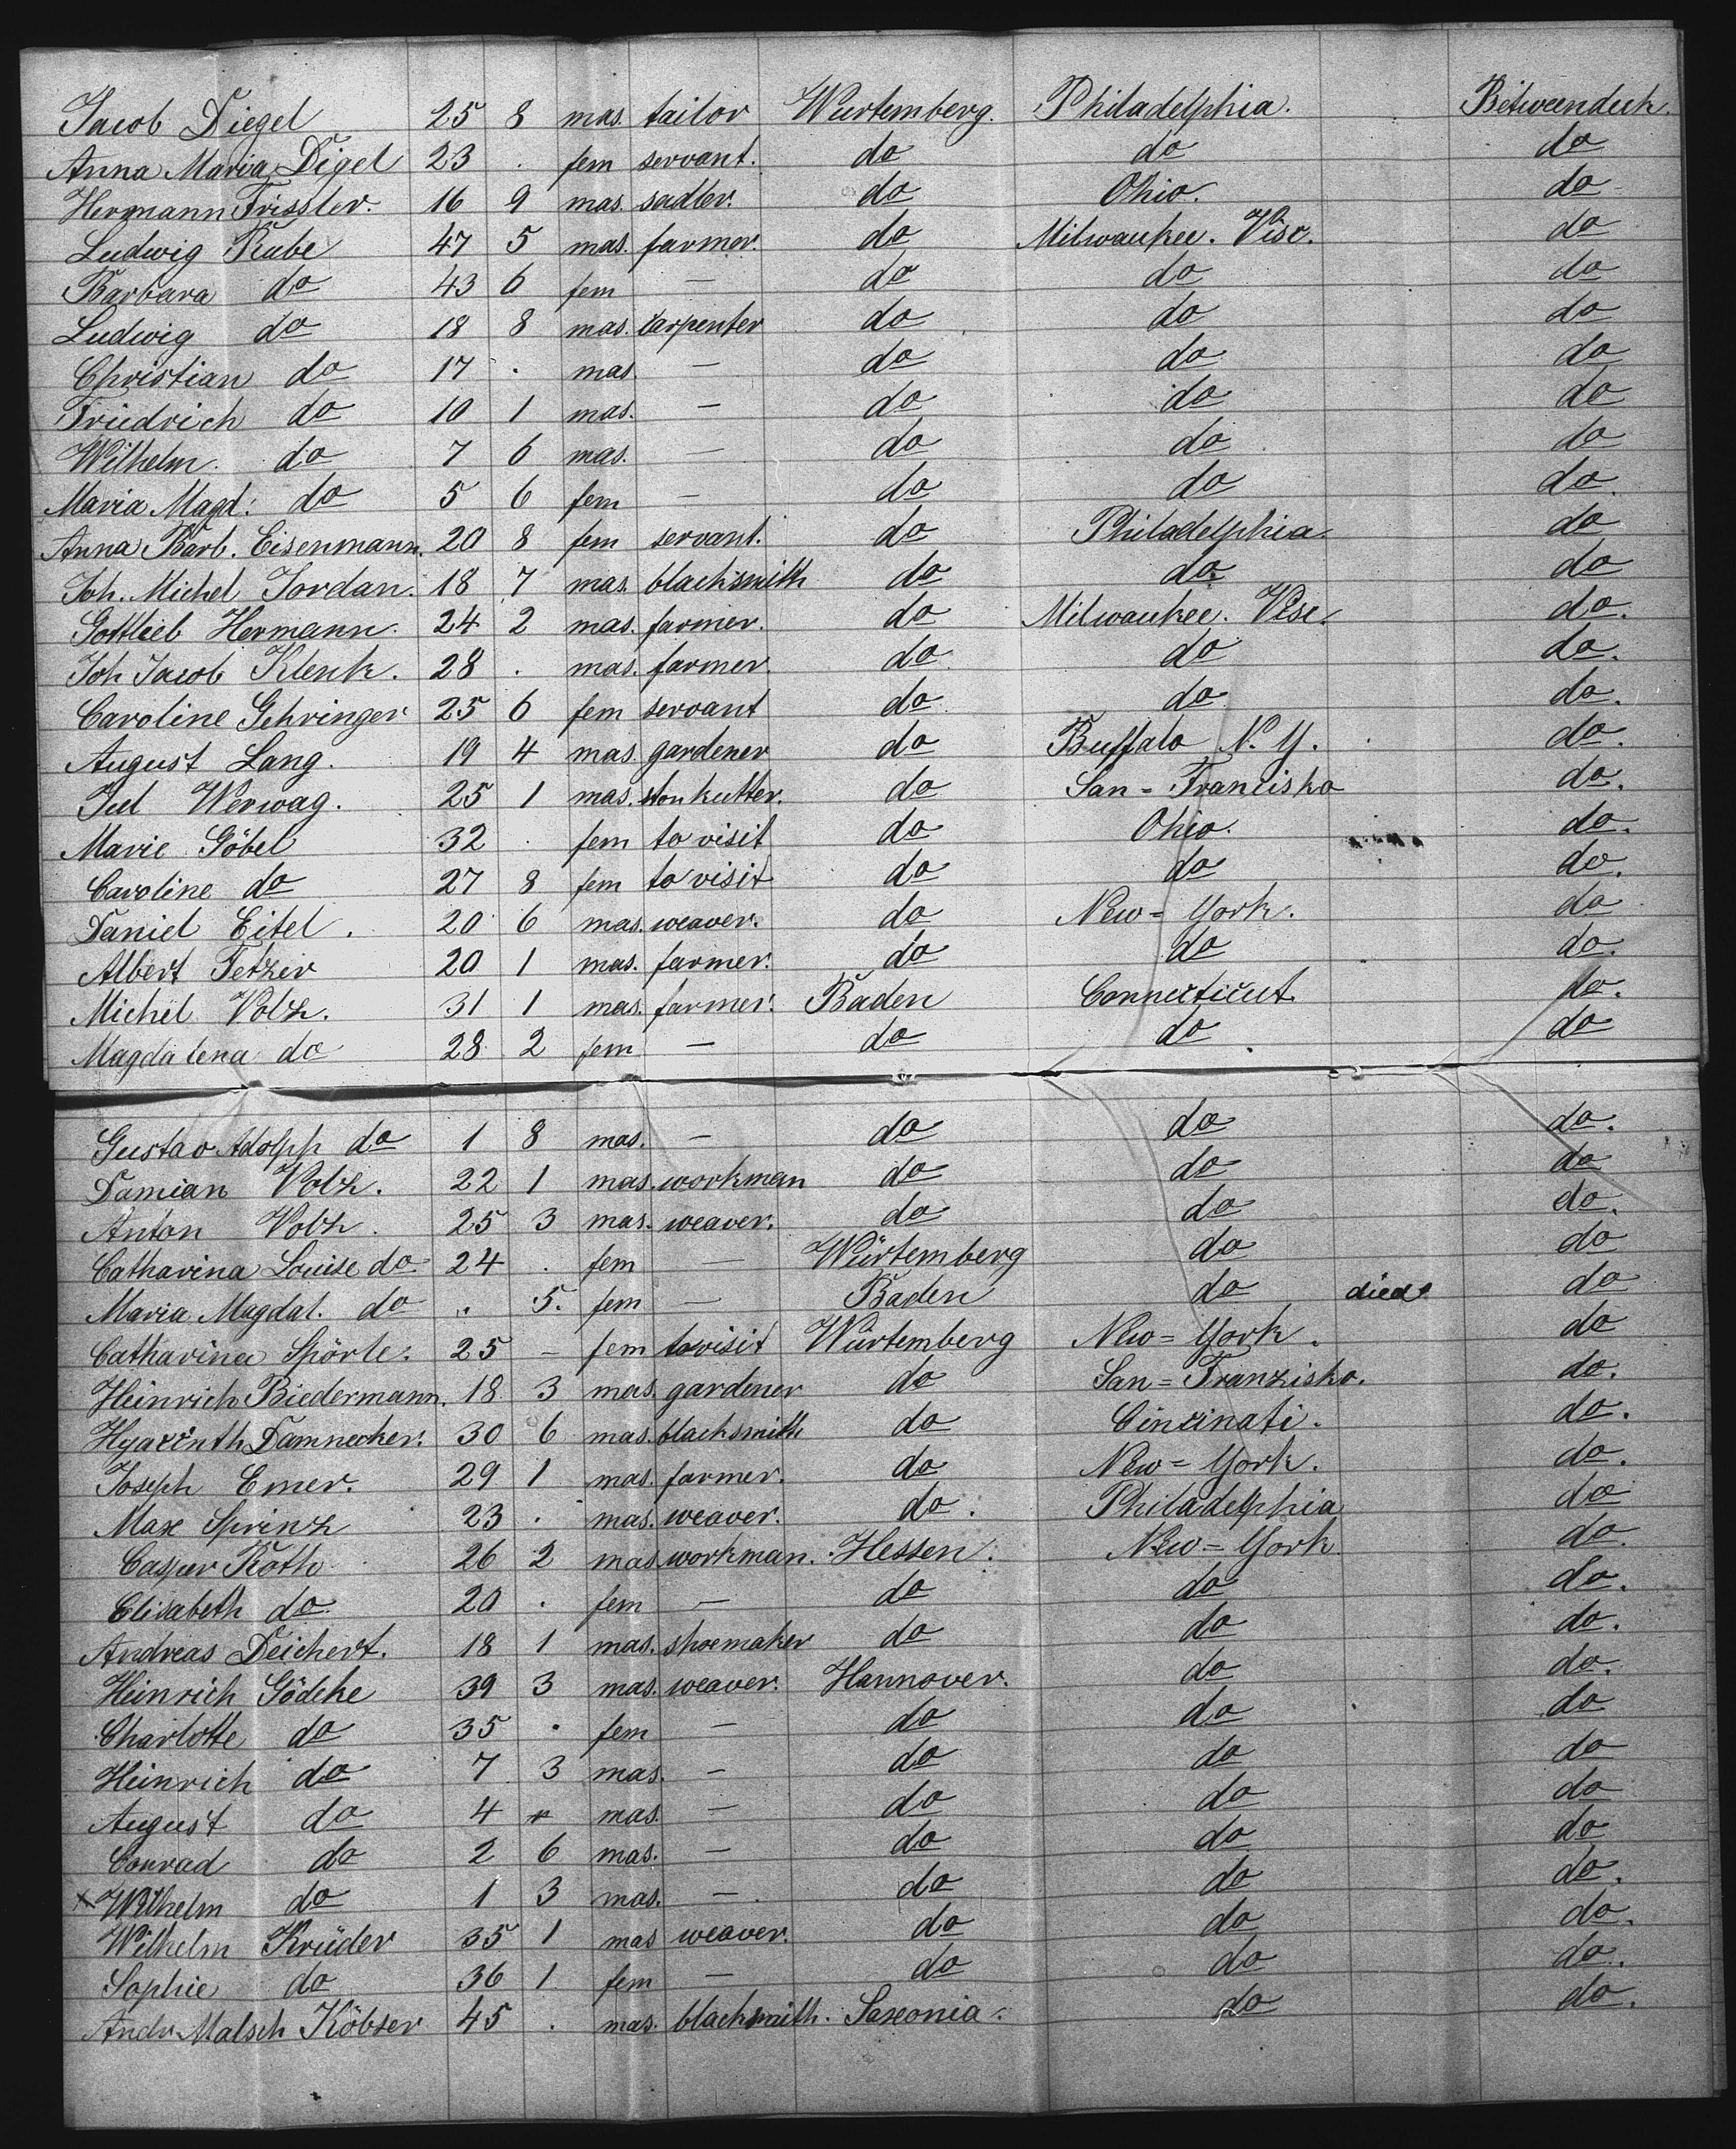 Jacob Diegel 25 8 mas. tailor Wurtemberg. Philadelphia. Betweendeck.
Anna Maria Digel 23 . fem servant. do do do
Hermann Frissler. 16 9 mas. sadler. do Ohio. do
Ludwig Kube 47 5 mas. farmer. do Milwaukee. Visc. do
Barbara do 43 6 fem — do do do
Ludwig do 18 8 mas. carpenter do do do
Christian do 17 . mas. — do do do
Friedrich do 10 1 mas. — do do do
Wilhelm. do 7 6 mas. — do do do
Maria Magd: do 5 6 fem — do do do.
Anna Barb. Eisenmann. 20 8 fem servant. do Philadelphia. do
Joh. Michel Jordan. 18 7 mas. blacksmith do do do
Gottlieb Hermann. 24 2 mas. farmer. do Milwaukee. Visc. do.
Joh Jacob Klenk. 28 . mas. farmer do do do.
Caroline Gehringer 25 6 fem servant do do do.
August Lang. 19 4 mas. gardener do Buffalo N. Y. do.
Jul Werwag. 25 1 mas. stonkutter. do San = Francisko do.
Marie Göbel 32 . fem to visit do Ohio. do.
Caroline do 27 8 fem to visit do do do.
Daniel Eitel. 20 6 mas. weaver. do New = York. do
Albert Fetzer 20 1 mas. farmer. do do do.
Michel Volz. 31 1 mas. farmer. Baden Connecticut. do.
Magdalena do 28 2 fem — do do do
Gustav Adolph do 1 8 mas. — do do do.
Damian Volz. 22 1 mas. workman do do do
Anton Volz. 25 3 mas. weaver. do do do.
Catharina Louise do 24 . fem — Würtemberg do do
Maria Magdal. do . 5. fem — Baden do died do
Catharina Spörle. 25 – fem to visit Wurtemberg New = York. do
Heinrich Biedermann. 18 3 mas. gardener do San = Franzisko. do.
Hyacinth Damnecker. 30 6 mas. blacksmith do Cincinati. do.
Joseph Emer. 29 1 mas. farmer. do New = York. do.
Max Sprinz 23 . mas. weaver. do. Philadelphia do
Casper Roth 26 2 mas workman. Hessen. New = York. do.
Elisabeth do 20 . fem — do do do.
Andreas Deichert. 18 1 mas. shoemaker do do do.
Heinrich Gödeke 39 3 mas. weaver. Hannover. do do.
Charlotte do 35 . fem — do do do
Heinrich do 7 3 mas. — do do do
August do 4 mas. — do do do
Conrad do 2 6 mas. — do do do
x Wilhelm do 1 3 mas. — do do do.
Wilhelm Krüder 35 1 mas weaver. do do do.
Sophie do 36 1 fem — do do do.
Andr. Malsch Köbser 45 . mas. blacksmith. Saxonia. do do.